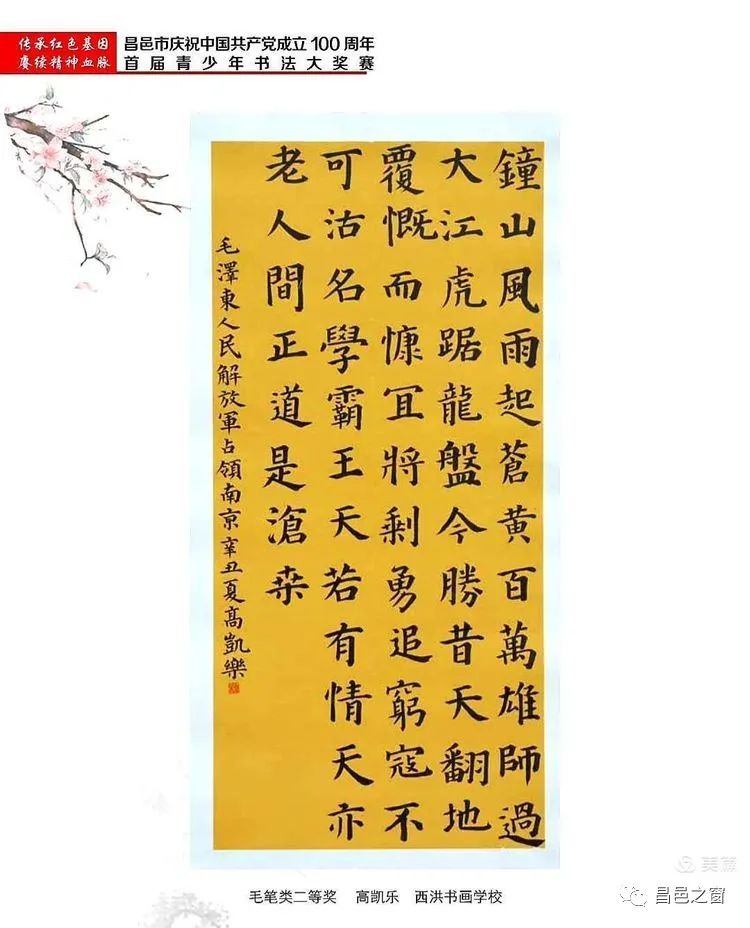 传承红色基因
赓续精神血脉
昌邑市庆祝中国共产党成立100周年
首届青少年书法大奖赛
鐘山風雨起蒼黄百萬雄師過
大江虎踞龍盤今勝昔天翻地
覆慨而慷冝將剩勇追窮寇不
可沽名學霸王天若有情天亦
老人間正道是滄桒
毛澤東人民解放軍占領南京辛丑夏髙凱樂
毛笔类二等奖 高凯乐 西洪书画学校
美篇
昌邑之窗